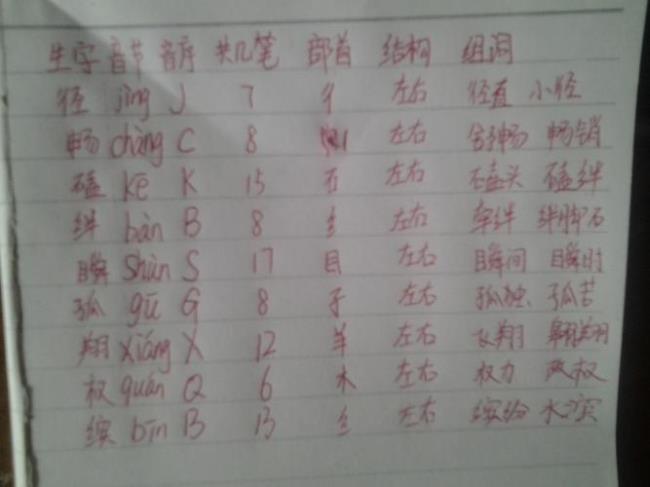 生字 音节 音序 共几笔 部首 结构 组词
径 jìng J 7 彳 左右 径直 小径
畅 chàng C 8 左右 舒畅 畅销
磕 kē K 15 石 左右 磕头 磕绊
绊 bàn B 8 纟 左右 牵绊 绊脚石
瞬 Shùn S 17 目 左右 瞬间 瞬时
孤 gū G 8 子 左右 孤独 孤苦
翔 xiáng X 12 羊 左右 飞翔 翱翔
权 quán Q 6 木 左右 权力 政权
缤 bīn B 13 纟 左右 缤纷 水滨